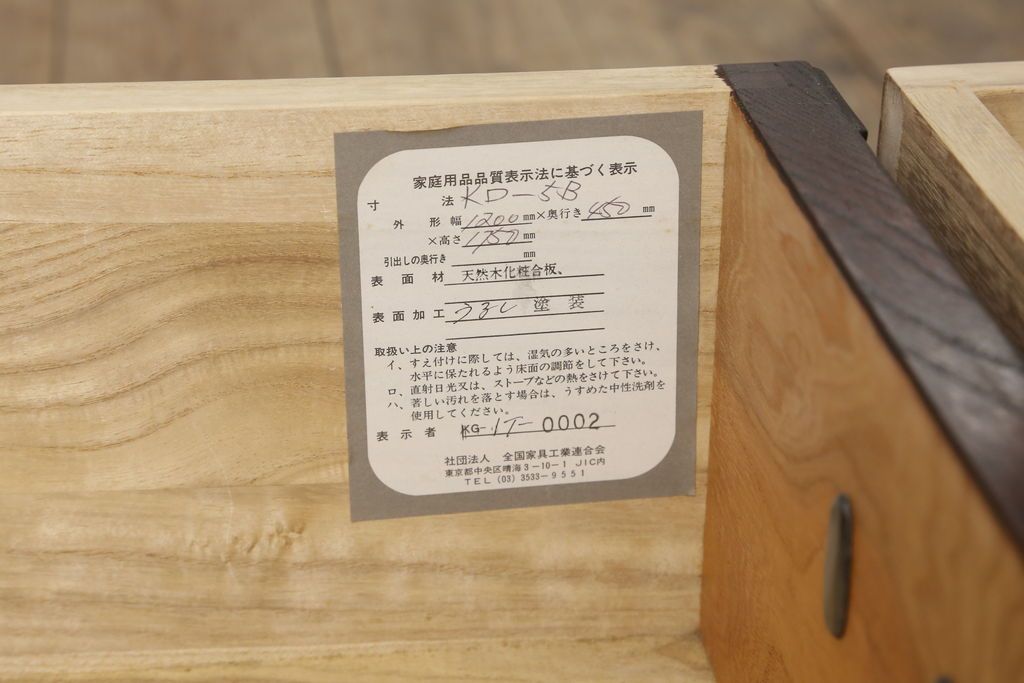 家庭用品品質表示法に基づく表示
寸 法 KD-5B
外 形 幅 1200 mm×奥行き 450 mm
×高さ 1750 mm
引出しの奥行き mm
表 面 材 天然木化粧合板、
表 面 加 工 うるし 塗 装
取扱い上の注意
イ、すえ付けに際しては、湿気の多いところをさけ、
水平に保たれるよう床面の調節をして下さい。
ロ、直射日光又は、ストーブなどの熱をさけて下さい。
ハ、著しい汚れを落とす場合は、うすめた中性洗剤を
使用してください。
表 示 者 KG-IT-0002
社団法人 全国家具工業連合会
東京都中央区晴海3-10-1 JIC内
TEL (03) 3533-9551